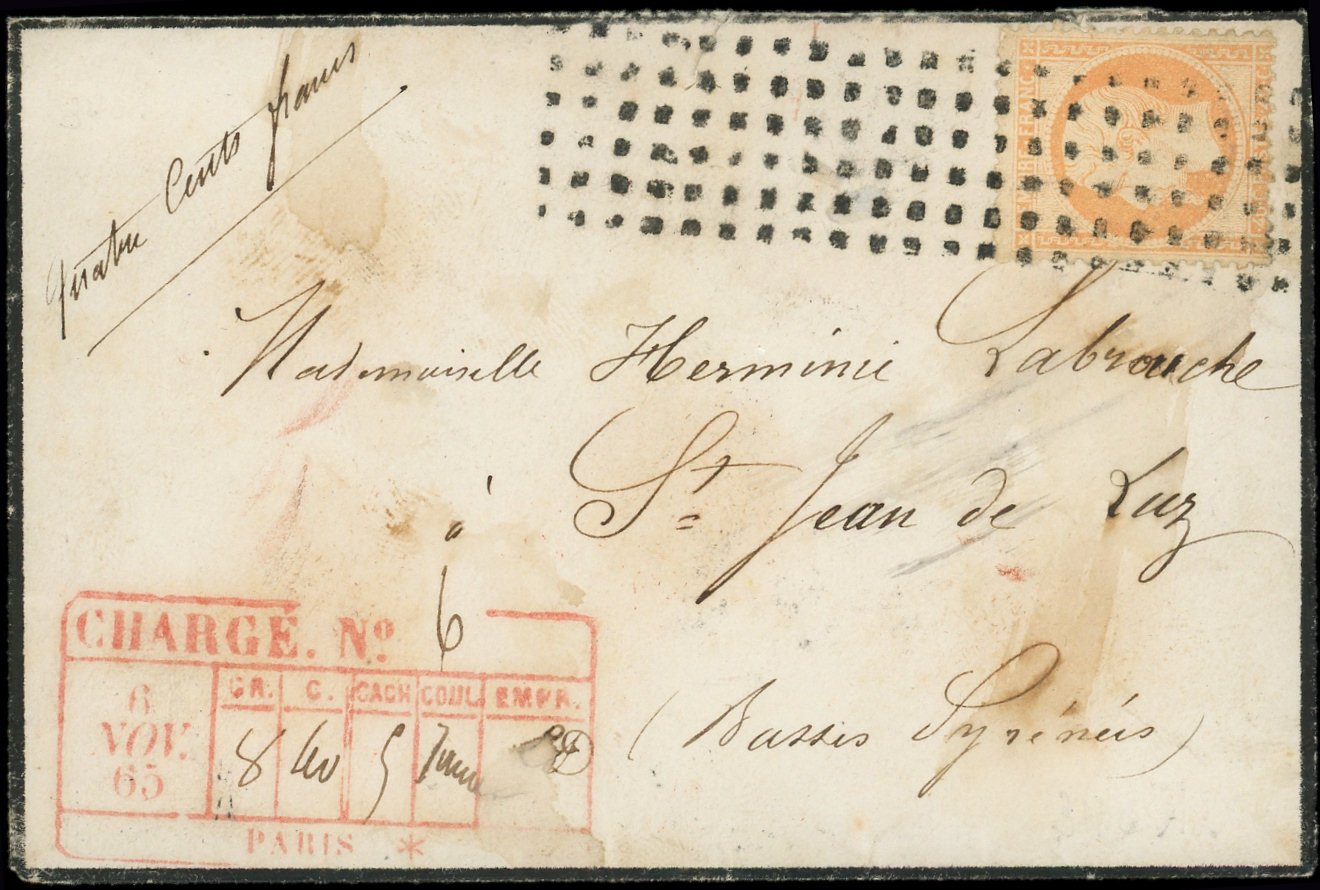 Quatre Cents francs
EMPIRE FRANC
Mademoiselle Herminie Labrouche
à
St Jean de Luz
(Basses Pyrénées)
CHARGÉ. No 6
6 NOV. 65
GR. C. CACH COUL. EMPR.
8 40 5
PARIS *